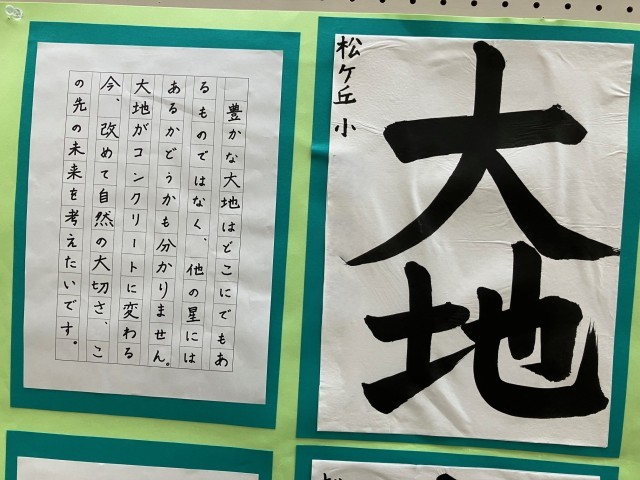 松ケ丘小
大地
豊かな大地はどこにでもあ
るものではなく、他の星には
あるかどうかも分かりません。
大地がコンクリートに変わる
今、改めて自然の大切さ、こ
の先の未来を考えたいです。